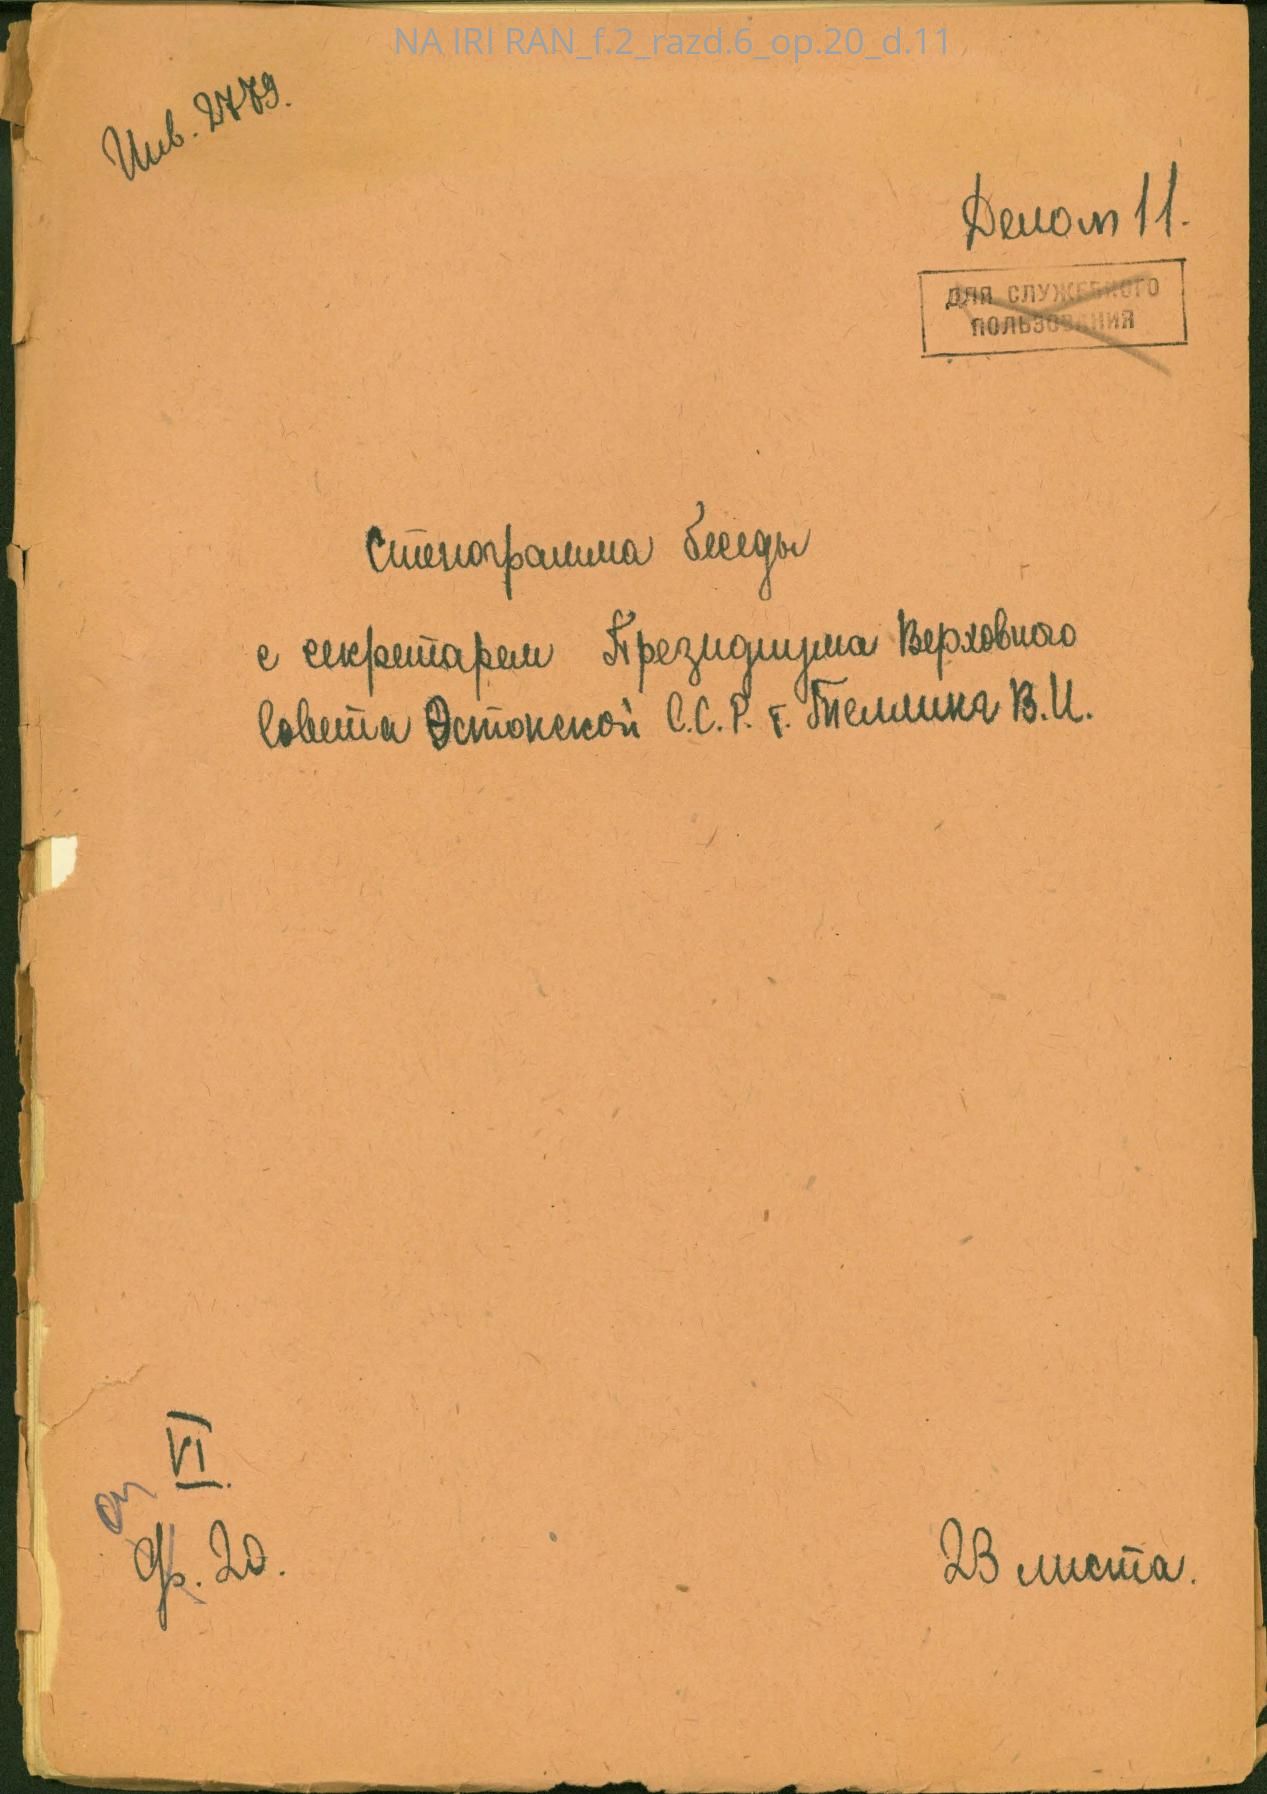 NA IRI RAN_f.2_razd.6_op.20_d.11
Инв. 2779.
Дело № 11.
ДЛЯ СЛУЖЕБНОГО
ПОЛЬЗОВАНИЯ
Стенограмма беседы
с секретарем Президиума Верховного
Совета Эстонской С.С.Р. т. Теллинг В.И.
VI.
оп
ф. 20.
23 листа.